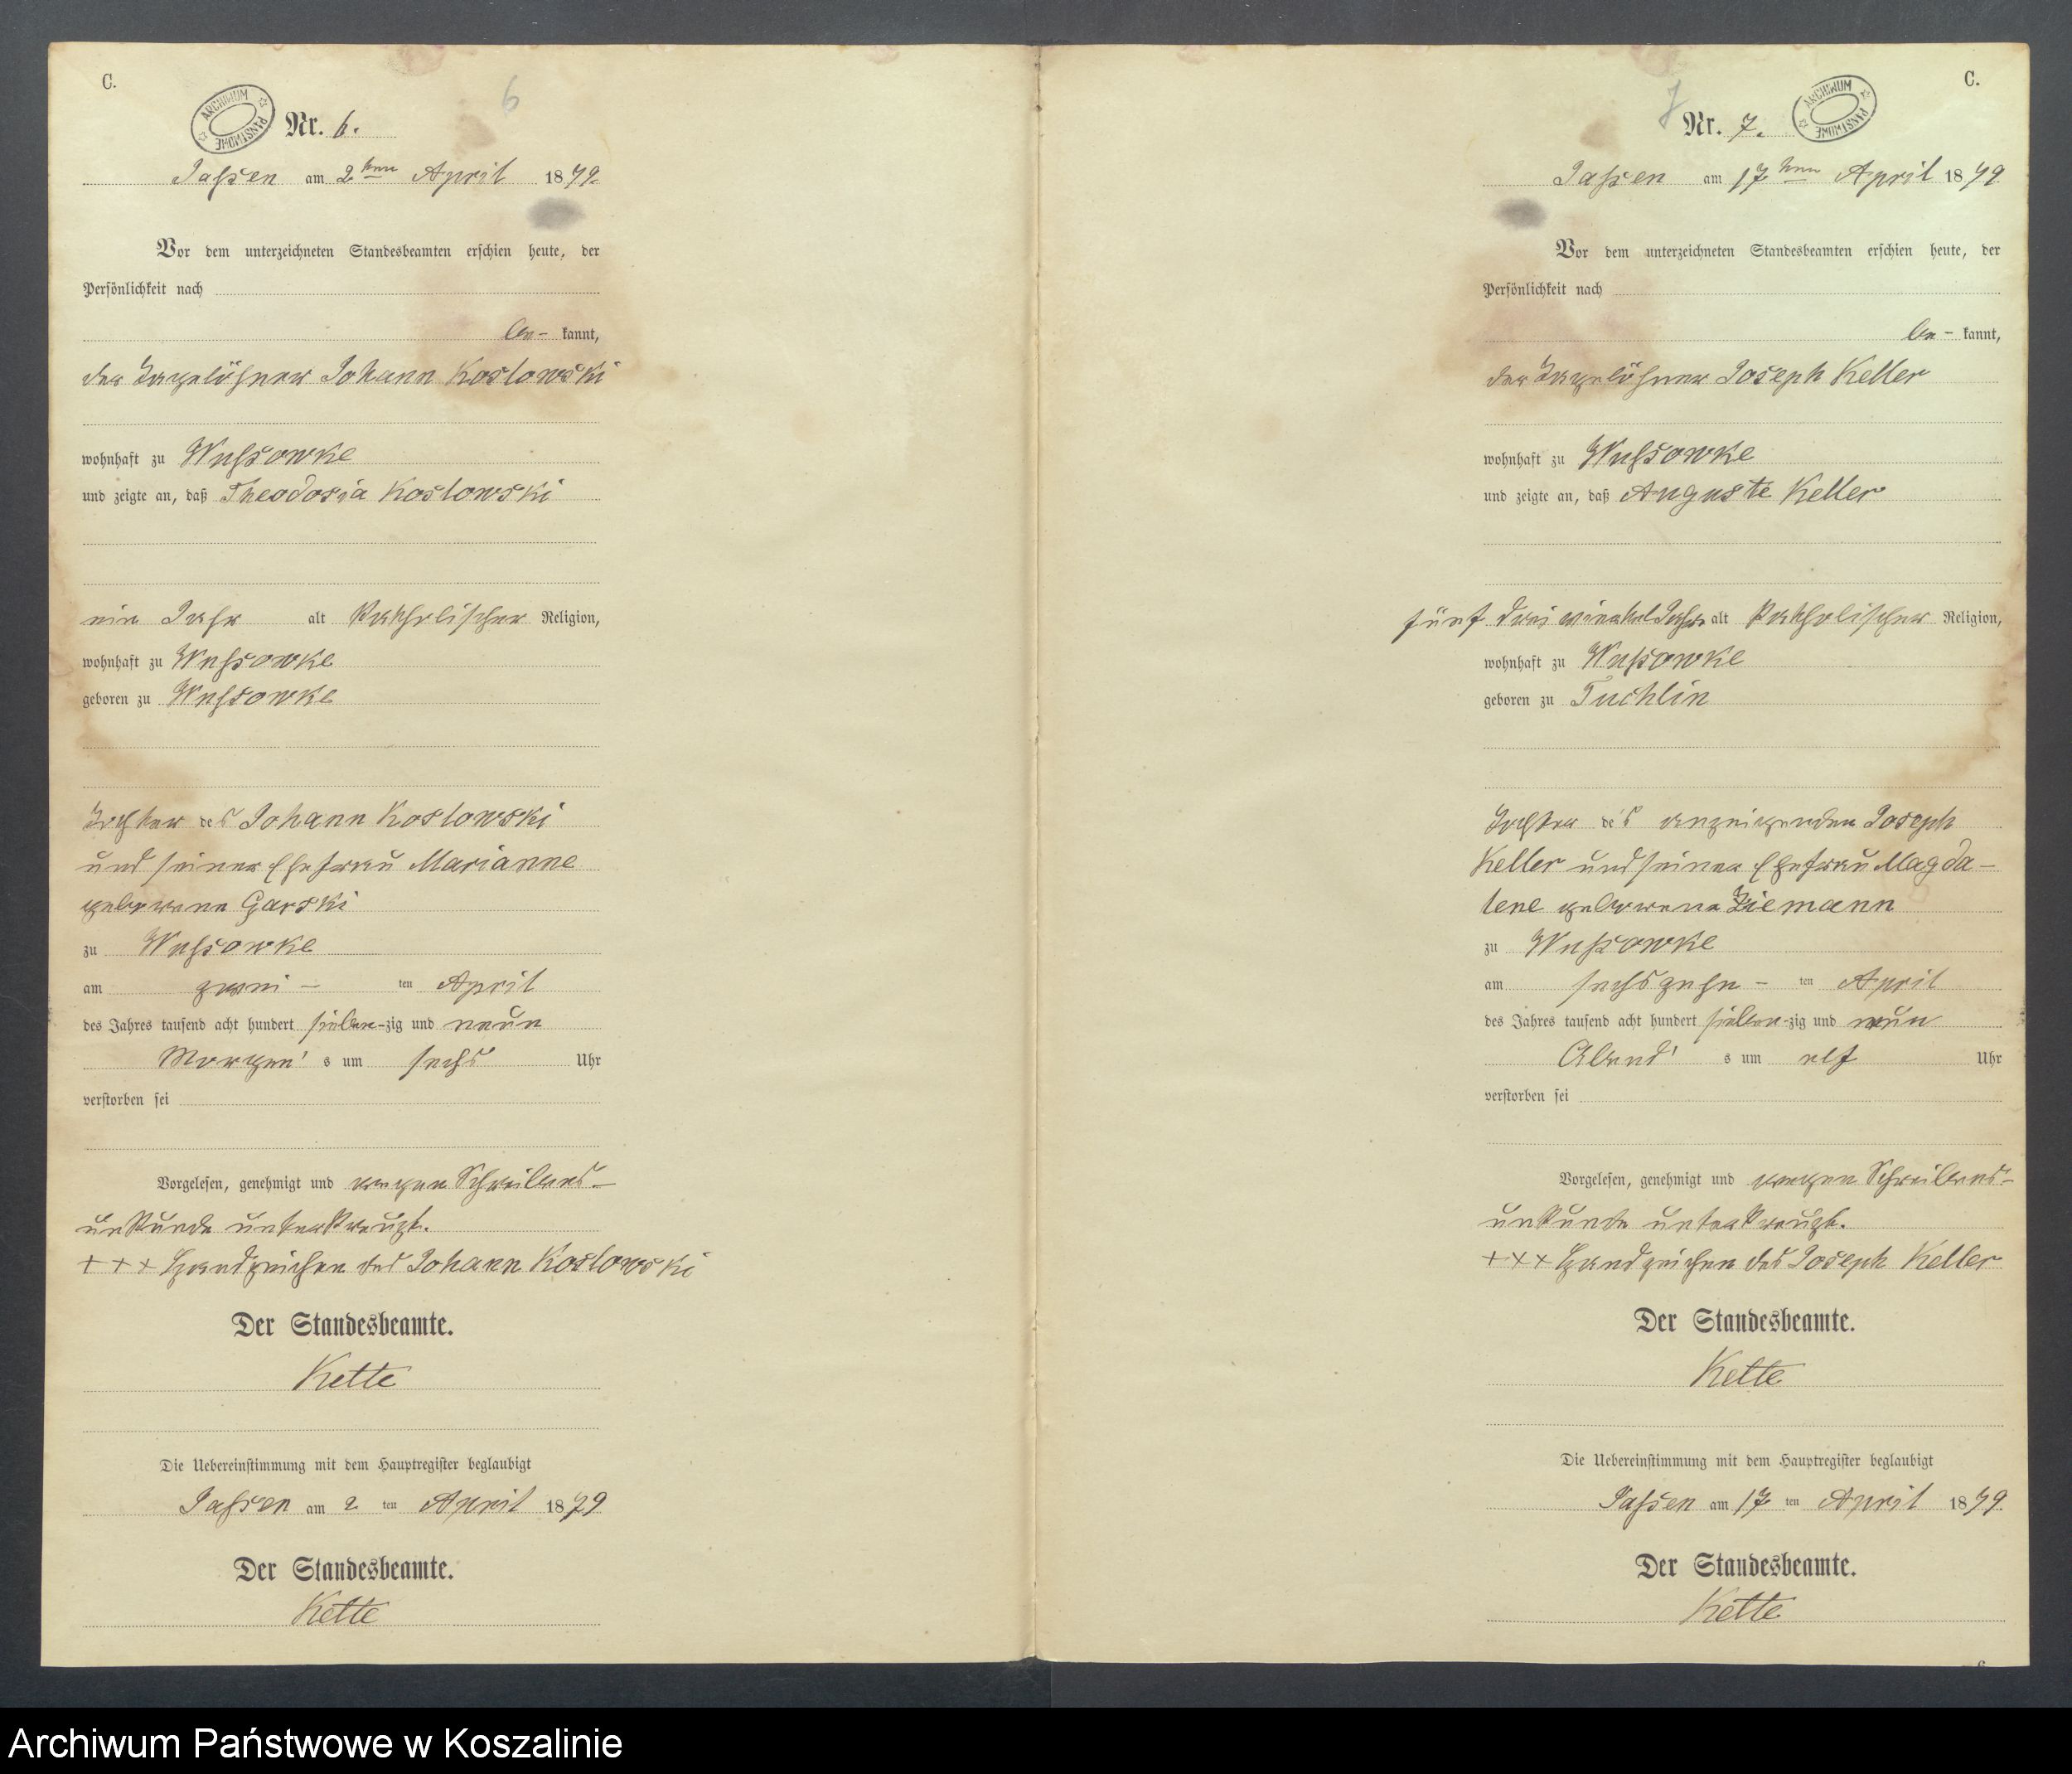 C.
6
ARCHIWUM PAŃSTWOWE
Nr. 6.
Jassen am 2ten April 1879.
Vor dem unterzeichneten Standesbeamten erschien heute, der
Persönlichkeit nach
be- kannt,
der Tagelöhner Johann Koslowski
wohnhaft zu Wussowke
und zeigte an, daß Theodosia Koslowski
ein Jahr alt katholischer Religion,
wohnhaft zu Wussowke
geboren zu Wussowke
Tochter des Johann Koslowski
und seiner Ehefrau Marianne
geborene Garski
zu Wussowke
am zwei- ten April
des Jahres tausend acht hundert sieben-zig und neun
Morgen's um sechs Uhr
verstorben sei
Vorgelesen, genehmigt und wegen Schreibens-
unkunde unterkreuzt.
+++ Handzeichen des Johann Koslowski
Der Standesbeamte.
Kette
Die Uebereinstimmung mit dem Hauptregister beglaubigt
Jassen am 2 ten April 1879
Der Standesbeamte.
Kette
C.
7
Nr. 7.
ARCHIWUM PAŃSTWOWE
Jassen am 17ten April 1879
Vor dem unterzeichneten Standesbeamten erschien heute, der
Persönlichkeit nach
be- kannt,
der Tagelöhner Joseph Keller
wohnhaft zu Wussowke
und zeigte an, daß Auguste Keller
fünf drei viertel Jahre alt katholischer Religion,
wohnhaft zu Wussowke
geboren zu Tuchlin
Tochter des anzeigenden Joseph
Keller und seiner Ehefrau Magda-
lene geborene Ziemann
zu Wussowke
am sechszehn- ten April
des Jahres tausend acht hundert sieben-zig und neun
Abend's um elf Uhr
verstorben sei
Vorgelesen, genehmigt und wegen Schreibens-
unkunde unterkreuzt.
+++ Handzeichen des Joseph Keller
Der Standesbeamte.
Kette
Die Uebereinstimmung mit dem Hauptregister beglaubigt
Jassen am 17 ten April 1879.
Der Standesbeamte.
Kette
Archiwum Państwowe w Koszalinie